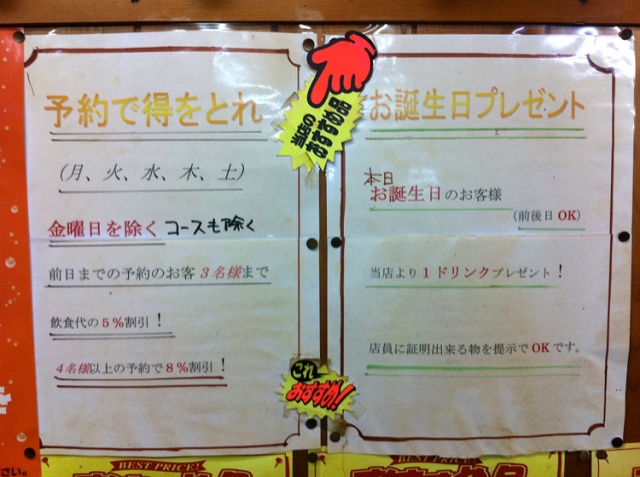 予約で得をとれ
(月、火、水、木、土)
金曜日を除く コースも除く
前日までの予約のお客3名様まで
飲食代の5%割引!
4名様以上の予約で8%割引!
当店の
おすすめ品
これ
おすすめ!
お誕生日プレゼント
本日
お誕生日のお客様
(前後日OK)
当店より1ドリンクプレゼント!
店員に証明出来る物を提示でOKです。
さい。
BEST PRICE!
BEST PRICE!